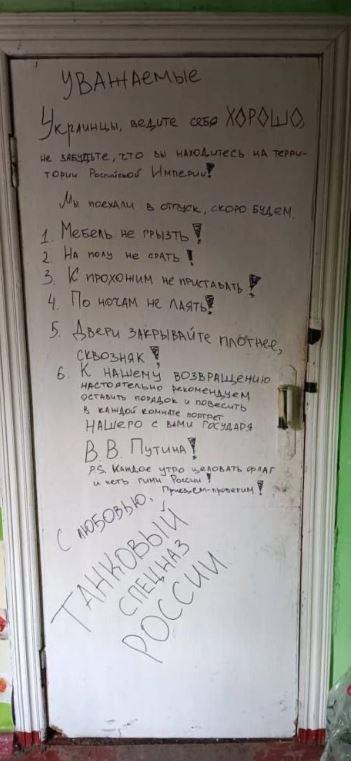 УВАЖАЕМЫЕ
УКРАИНЦЫ, ВЕДИТЕ СЕБЯ ХОРОШО,
НЕ ЗАБУДЬТЕ, ЧТО ВЫ НАХОДИТЕСЬ НА ТЕРРИ-
ТОРИИ РОССИЙСКОЙ ИМПЕРИИ!
МЫ ПОЕХАЛИ В ОТПУСК, СКОРО БУДЕМ.
1. МЕБЕЛЬ НЕ ГРЫЗТЬ!
2. НА ПОЛУ НЕ СРАТЬ!
3. К ПРОХОЖИМ НЕ ПРИСТАВАТЬ!
4. ПО НОЧАМ НЕ ЛАЯТЬ!
5. ДВЕРИ ЗАКРЫВАЙТЕ ПЛОТНЕЕ,
СКВОЗНЯК!
6. К НАШЕМУ ВОЗВРАЩЕНИЮ
НАСТОЯТЕЛЬНО РЕКОМЕНДУЕМ
ОСТАВИТЬ ПОРЯДОК И ПОВЕСИТЬ
В КАЖДОЙ КОМНАТЕ ПОРТРЕТ
НАШЕГО С ВАМИ ГОСУДАРЯ
В. В. ПУТИНА!
P.S. КАЖДОЕ УТРО ЦЕЛОВАТЬ ФЛАГ
И ПЕТЬ ГИМН РОССИИ!
ПРИЕДЕМ-ПРОВЕРИМ!
С ЛЮБОВЬЮ,
ТАНКОВЫЙ
СПЕЦНАЗ
РОССИИ